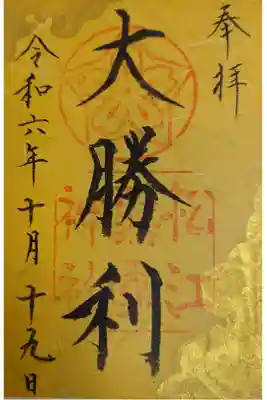 奉拝
大勝利
令和六年十月十九日